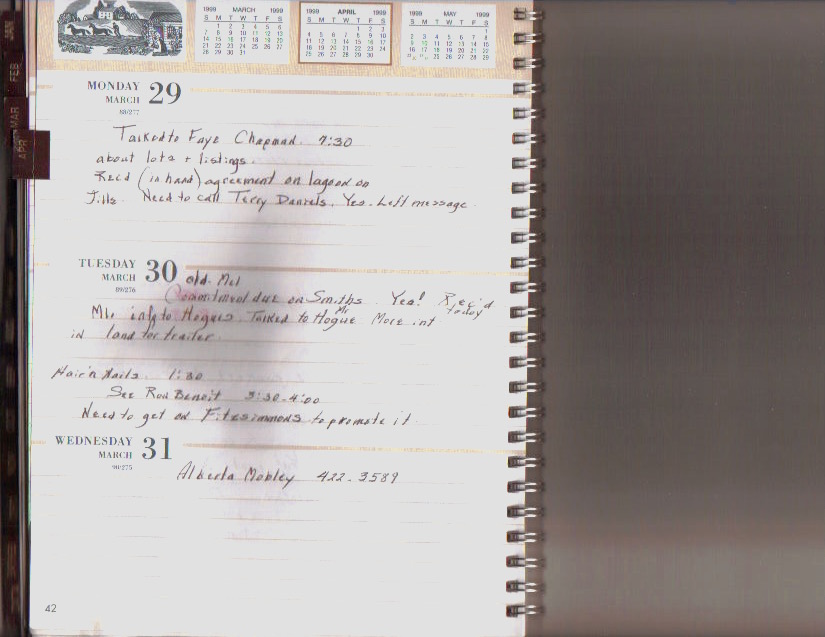 JAN
FEB
MAR
APR
1999 MARCH 1999
S M T W T F S
1 2 3 4 5 6
7 8 9 10 11 12 13
14 15 16 17 18 19 20
21 22 23 24 25 26 27
28 29 30 31
1999 APRIL 1999
S M T W T F S
1 2 3
4 5 6 7 8 9 10
11 12 13 14 15 16 17
18 19 20 21 22 23 24
25 26 27 28 29 30
1999 MAY 1999
S M T W T F S
1
2 3 4 5 6 7 8
9 10 11 12 13 14 15
16 17 18 19 20 21 22
25 26 27 28 29
MONDAY 29
MARCH
88/277
Talked to Faye Chapman. 7:30
about lots + listings.
Rec'd (in hand) agreement on lagoon on
Jills. Need to call Terry Daniels. Yes. Left message.
TUESDAY 30
MARCH
89/276
old.
Commitment due on Smiths. Yea! Rec'd today
info to Hogues. Talked to Mr Hogue More int
in land for trailer.
Hair 'n Nails 1:30
See Ron Benoit 3:30-4:00
Need to get on Fitzsimmons to promote it.
WEDNESDAY 31
MARCH
90/275
Alberta Mobley 422-3589
42